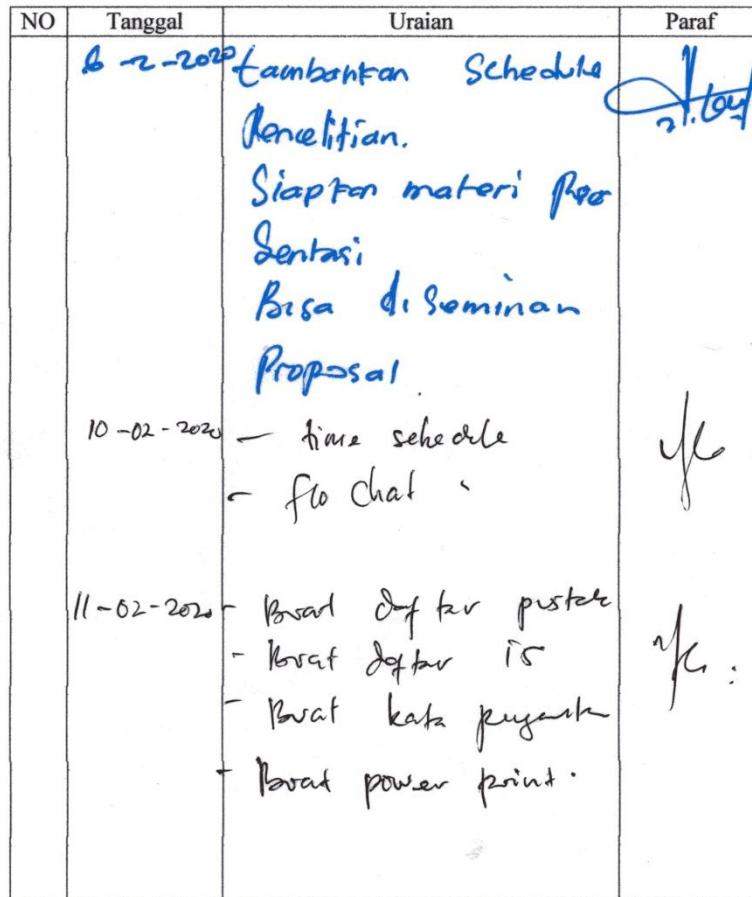 NO Tanggal Uraian Paraf
6-2-2020 tambahkan Schedule
Penelitian.
Siapkan materi Pre
Sentasi
Bisa di Seminar
Proposal
10-02-2020 - time schedule
- flo Chat
11-02-2020 - Buat daftar pustak
- Buat daftar isi
- Buat kata pengantar
- Buat power point.